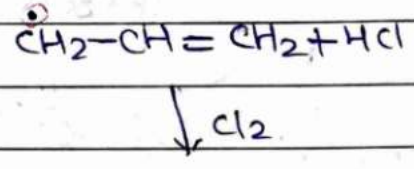 ĊH2-CH=CH2+HCl
↓Cl2